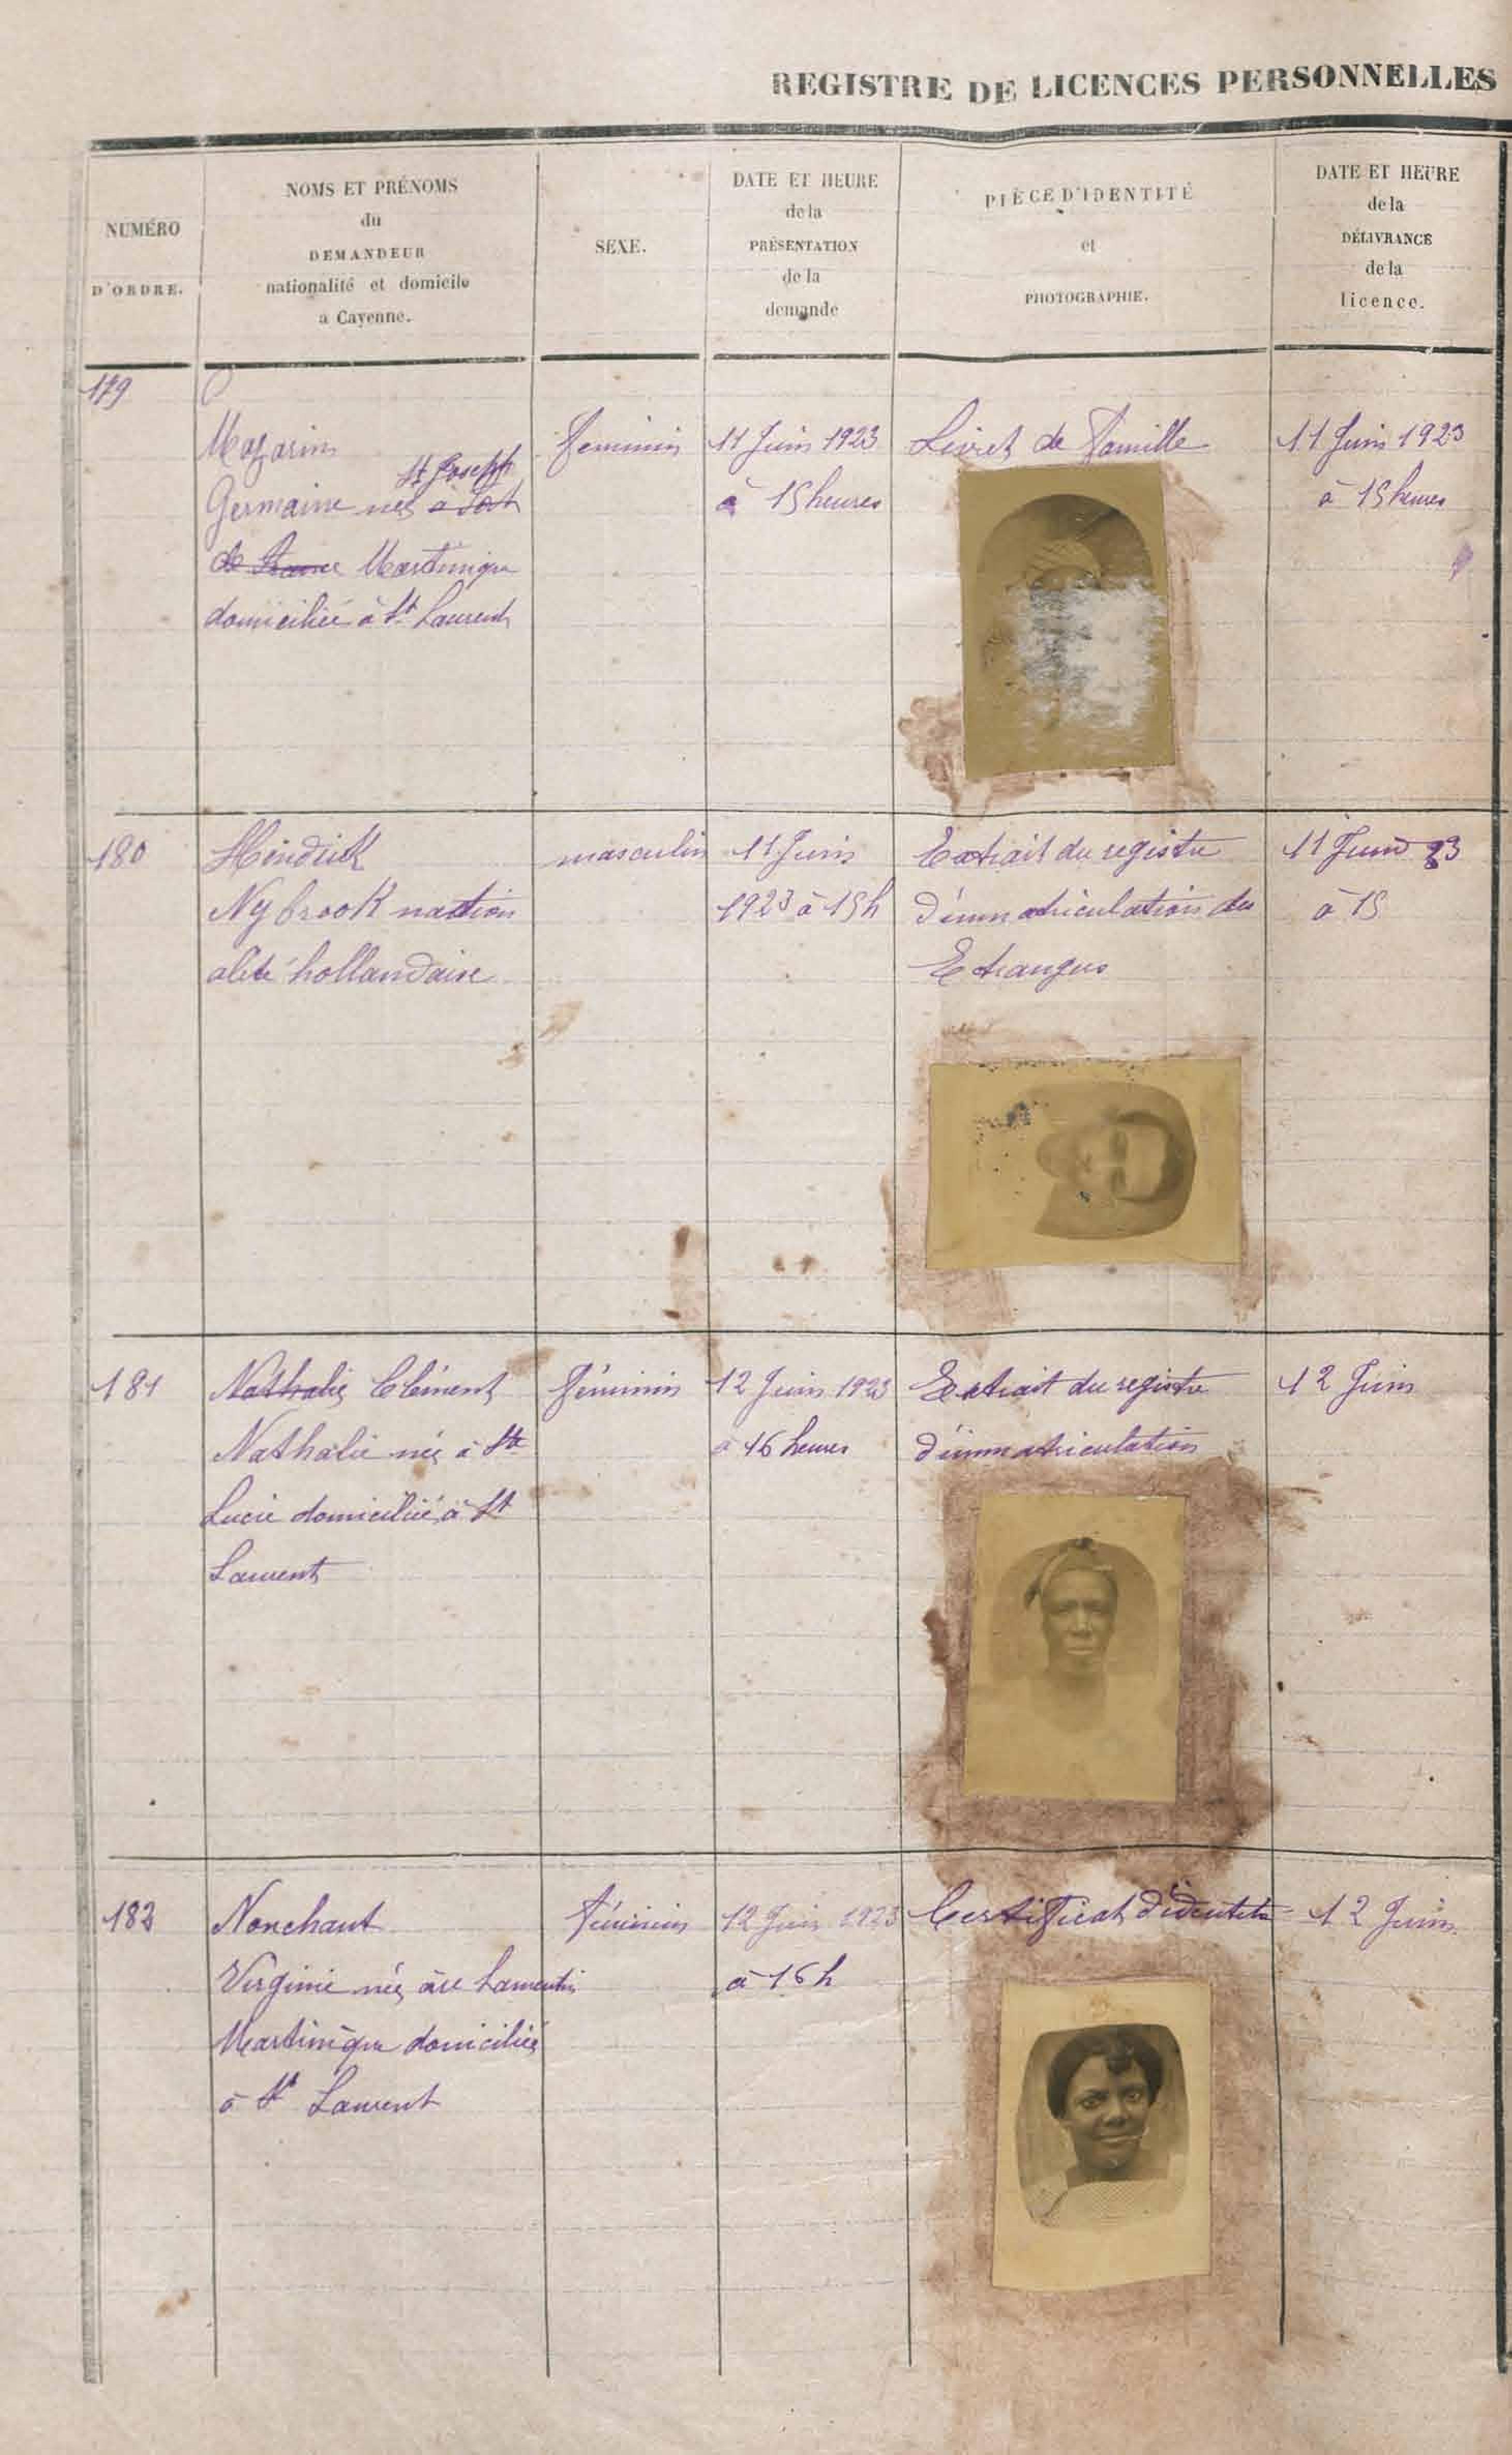 REGISTRE DE LICENCES PERSONNELLES
NUMÉRO
D'ORDRE.
NOMS ET PRÉNOMS
du
DEMANDEUR
nationalité et domicile
a Cayenne.
SEXE.
DATE ET HEURE
de la
PRÉSENTATION
de la
demande
PIÈCE D'IDENTITÉ
et
PHOTOGRAPHIE.
DATE ET HEURE
de la
DÉLIVRANCE
de la
licence.
179
Mazarin
St Joseph
Germaine née à Fort
de France Martinique
domiciliée à St Laurent
feminin
11 Juin 1923
à 15 heures
Livret de famille
11 Juin 1923
à 15 heures
180
Hendrick
Nybrook nation
alité hollandaise
masculin
11 Juin
1923 à 15h
Extrait du registre
d'immatriculation des
Etrangers
11 Juin 23
à 15
181
Nathalie Clément
Nathalie née à Ste
Lucie domiciliée à St
Laurent
féminin
12 Juin 1923
à 16 heures
Extrait du registre
d'immatriculation
12 Juin
182
Nonchaut
Virginie née au Lamentin
Martinique domiciliée
à St Laurent
féminin
12 Juin 1923
à 16 h
Certificat d'identité
12 Juin